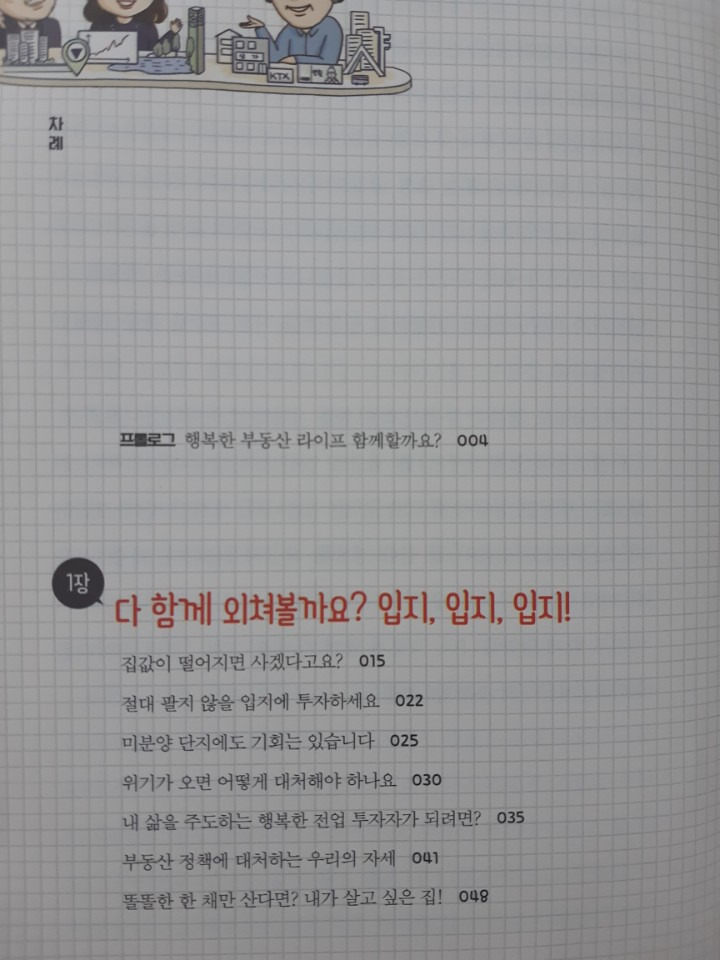 KTX
차
례
프롤로그 행복한 부동산 라이프 함께할까요? 004
1장
다 함께 외쳐볼까요? 입지, 입지, 입지!
집값이 떨어지면 사겠다고요? 015
절대 팔지 않을 입지에 투자하세요 022
미분양 단지에도 기회는 있습니다 025
위기가 오면 어떻게 대처해야 하나요 030
내 삶을 주도하는 행복한 전업 투자자가 되려면? 035
부동산 정책에 대처하는 우리의 자세 041
똘똘한 한 채만 산다면? 내가 살고 싶은 집! 048